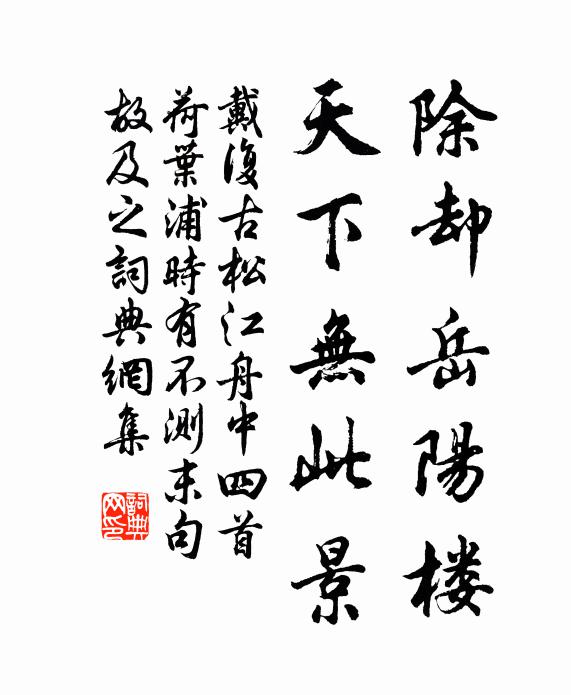 除却岳陽楼
天下無此景
戴復古松江舟中四首
荷葉浦時有不測末句
故及之詞典網集
詞典
网印